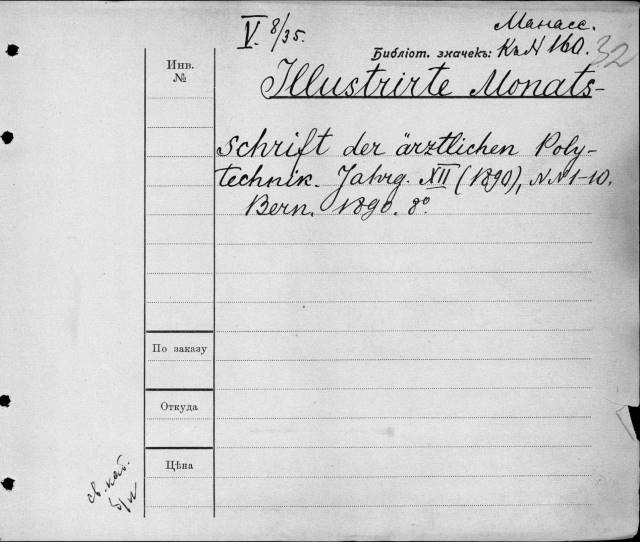 V. 8/35.
Манасс.
Библіот. значекъ: Къ N 160.
32
Инв.
№
Illustrirte Monats-
schrift der ärztlichen Poly-
technik. Jahrg. XII (1890), NN 1-10.
Bern. 1890. 8°.
По заказу
Откуда
Цѣна
св. каб.
б/н